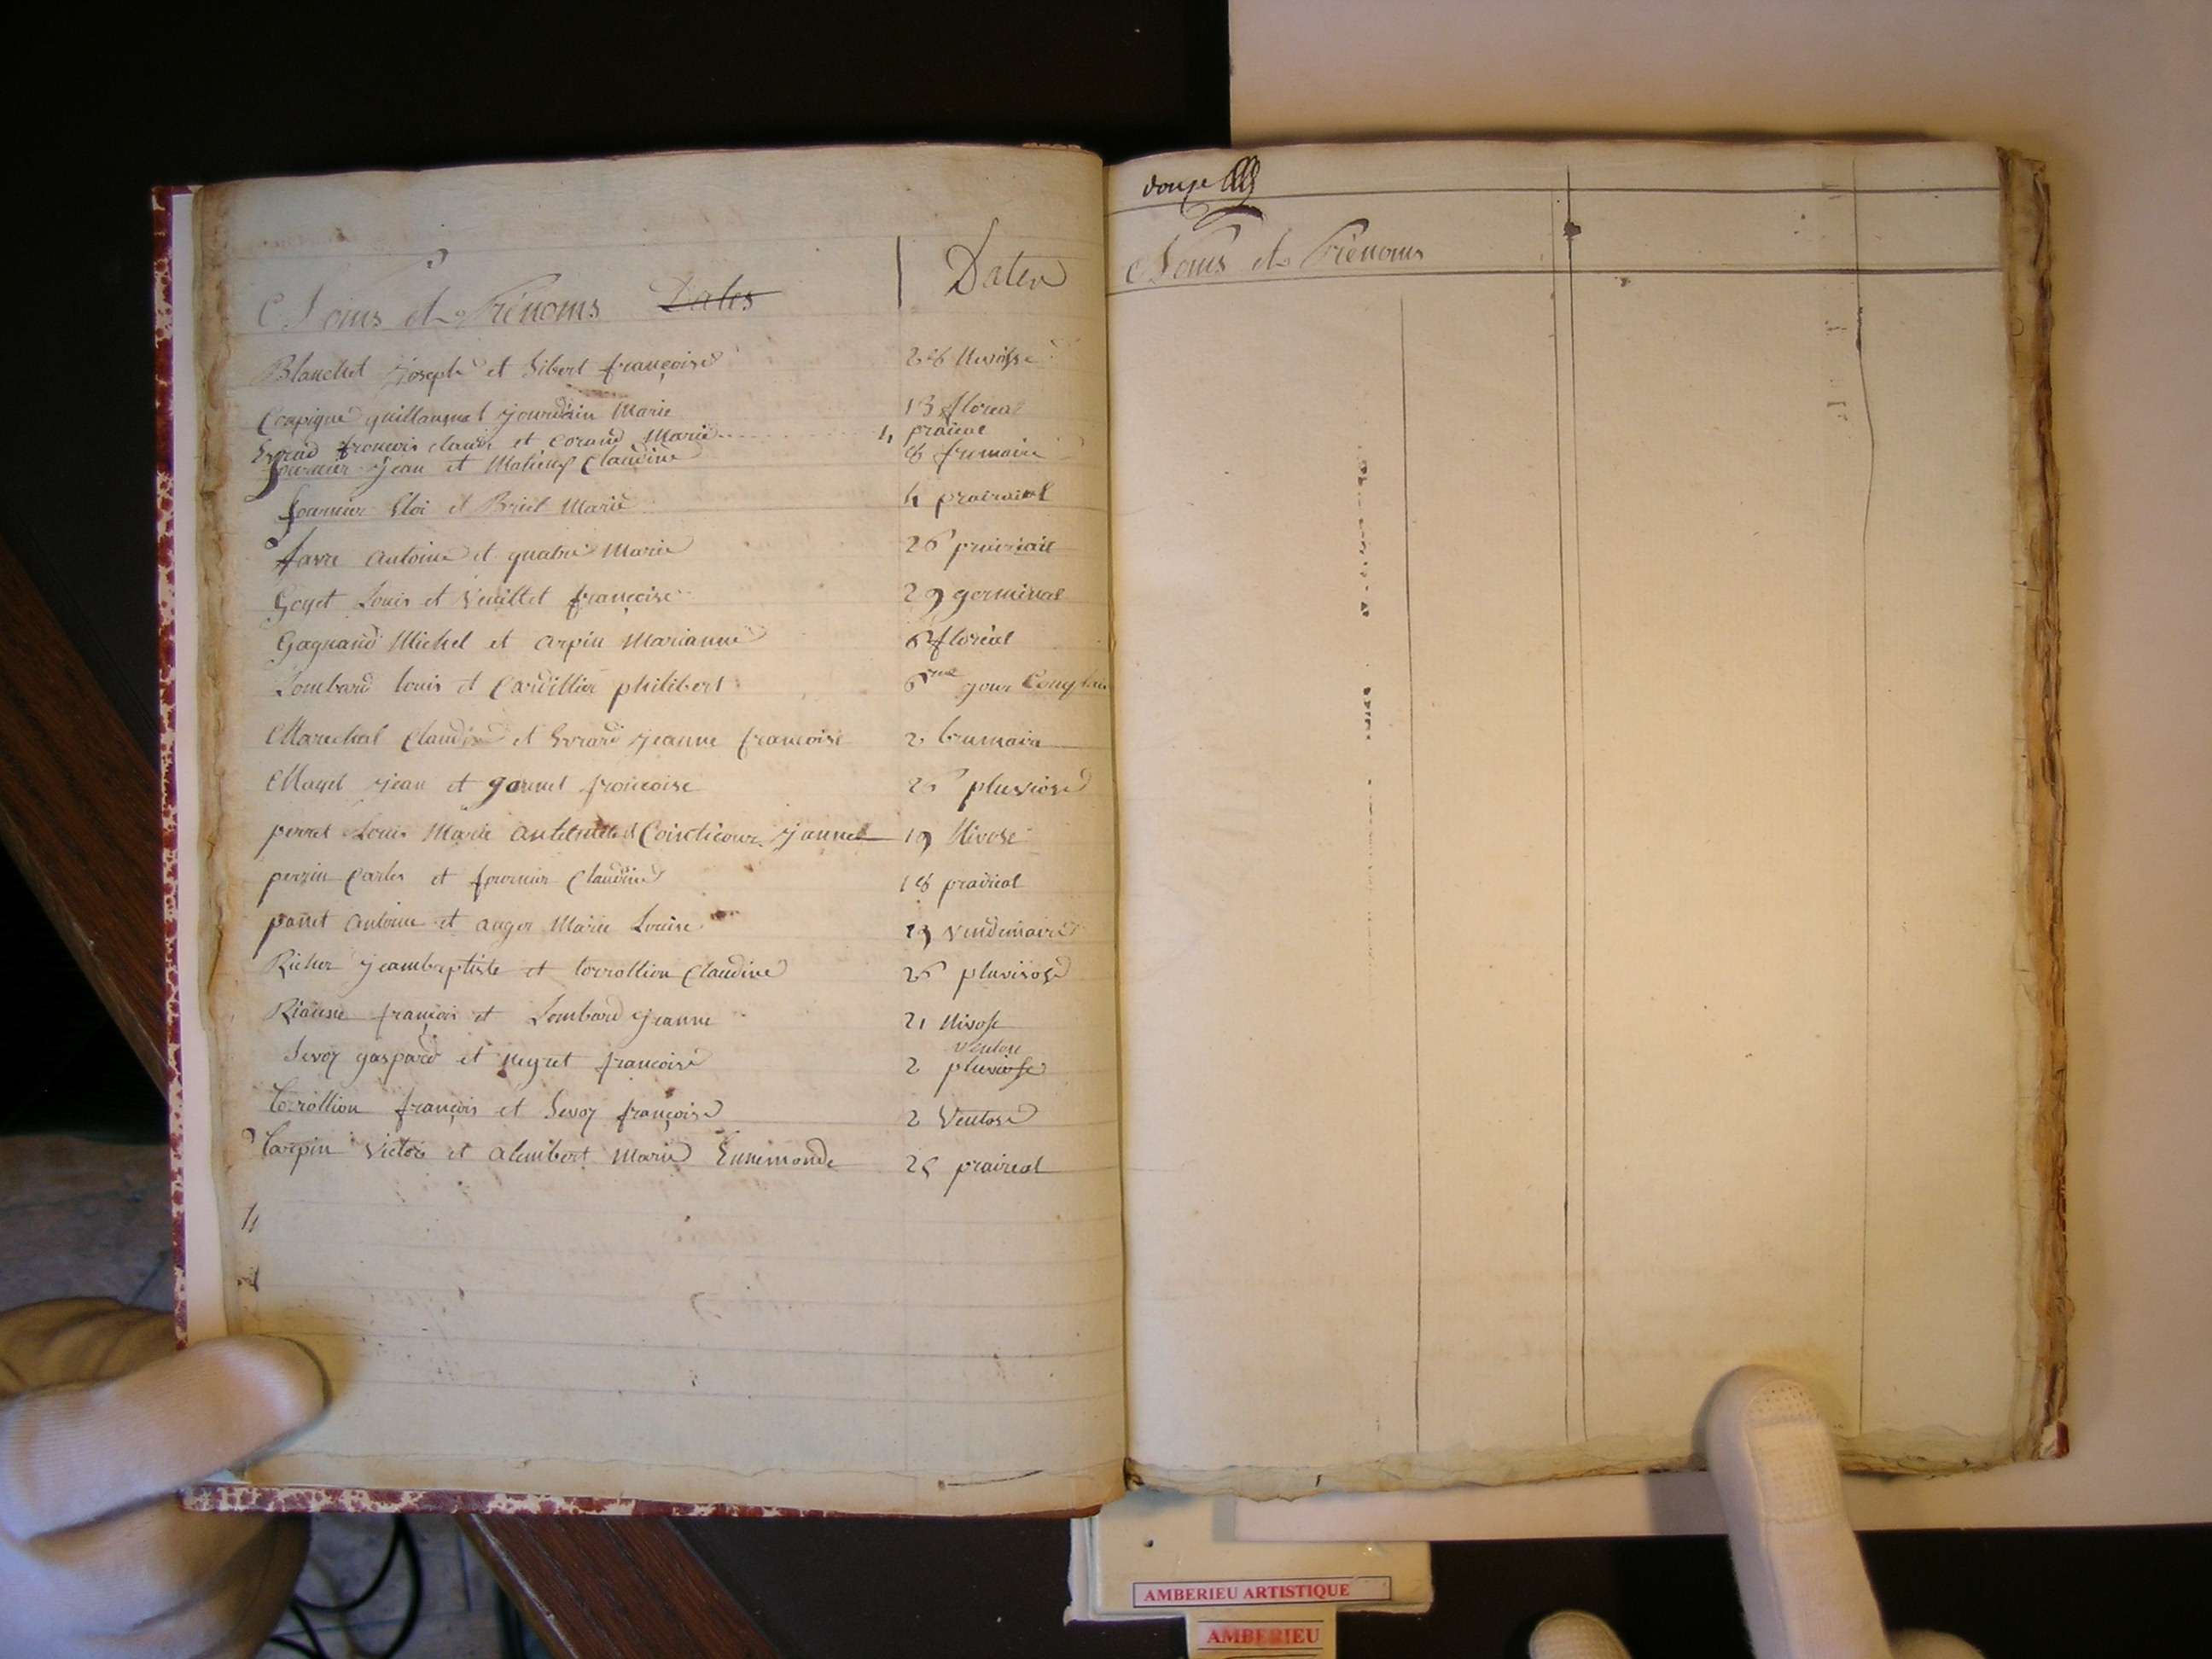 Noms et Prénoms Dates Dates
Blanchet joseph et Sibert françoise 28 Nivosse
Compigne guillaume et jourdain Marie 13 floreal
Evrad francois claude et Corand Marie 4 praieal
fournier jean et Mathieu Claudine 8 frumaire
fournier Eloi et Brict Marie 4 prairaial
favre antoine et quatre Marie 26 prairiail
Goyet Louis et Veuillet françoise 29 germinal
Gagnand Michel et arpin Marianne 6 floréal
Lombard louis et Cardillier philibert 6eme jour
Marechal Claudine et Evrard jeanne francoise 2 brumaire
Mayet jean et gonnet francoise 25 pluviose
perret Louis Marie et jeanne 19 Nivose
perrin Carles et fournier Claudine 18 praireal
panet antoine et auger Marie Louise 29 vendemaire
Richer jeambaptiste et torrollion Claudine 26 pluviose
françois et Lombard jeanne 21 Nivose
ventose
Sevoz gaspard et negret francoise 2 pluviose
torrollion françois et Sevoz françoise 2 Ventose
tarpin Victor et alembert Marie Ennemonde 25 praireal
douze
Noms et Prénoms
AMBERIEU ARTISTIQUE
AMBERIEU